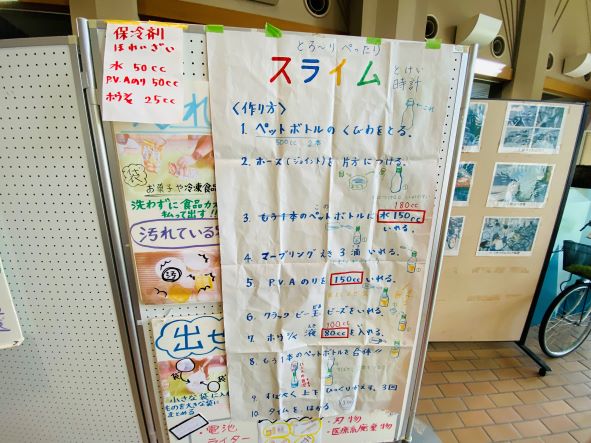 保冷剤
ほれいざい
水 50cc
P.V.Aのり 50cc
ホウ砂 25cc
お菓子や冷凍食品
洗わずに
払って出す!!
汚れている
出せ
小さな袋に入
ものを大きな袋に
まとめる
・電池
ライター
・刃物
・医療系廃棄物
とろ〜り ぺったり
スライム
とけい
時計
〈作り方〉
1. ペットボトルの くびわをとる。
500cc 2本
2. ホース(ジョイント)を 片方に つける。
この
180cc
3. もう1本のペットボトルに 水 150cc
いれる。
4. マーブリング えき 3滴 いれる。
5. P.V.A のりを 150cc いれる。
6. クラック ビー玉 ビーズをいれる。
100cc
7. ホウ砂 液 80cc を入れる。
8. もう1本のペットボトルを合体!!
9. すばやく 上下 ひっくりかえす。3回
10. タイムを はかる